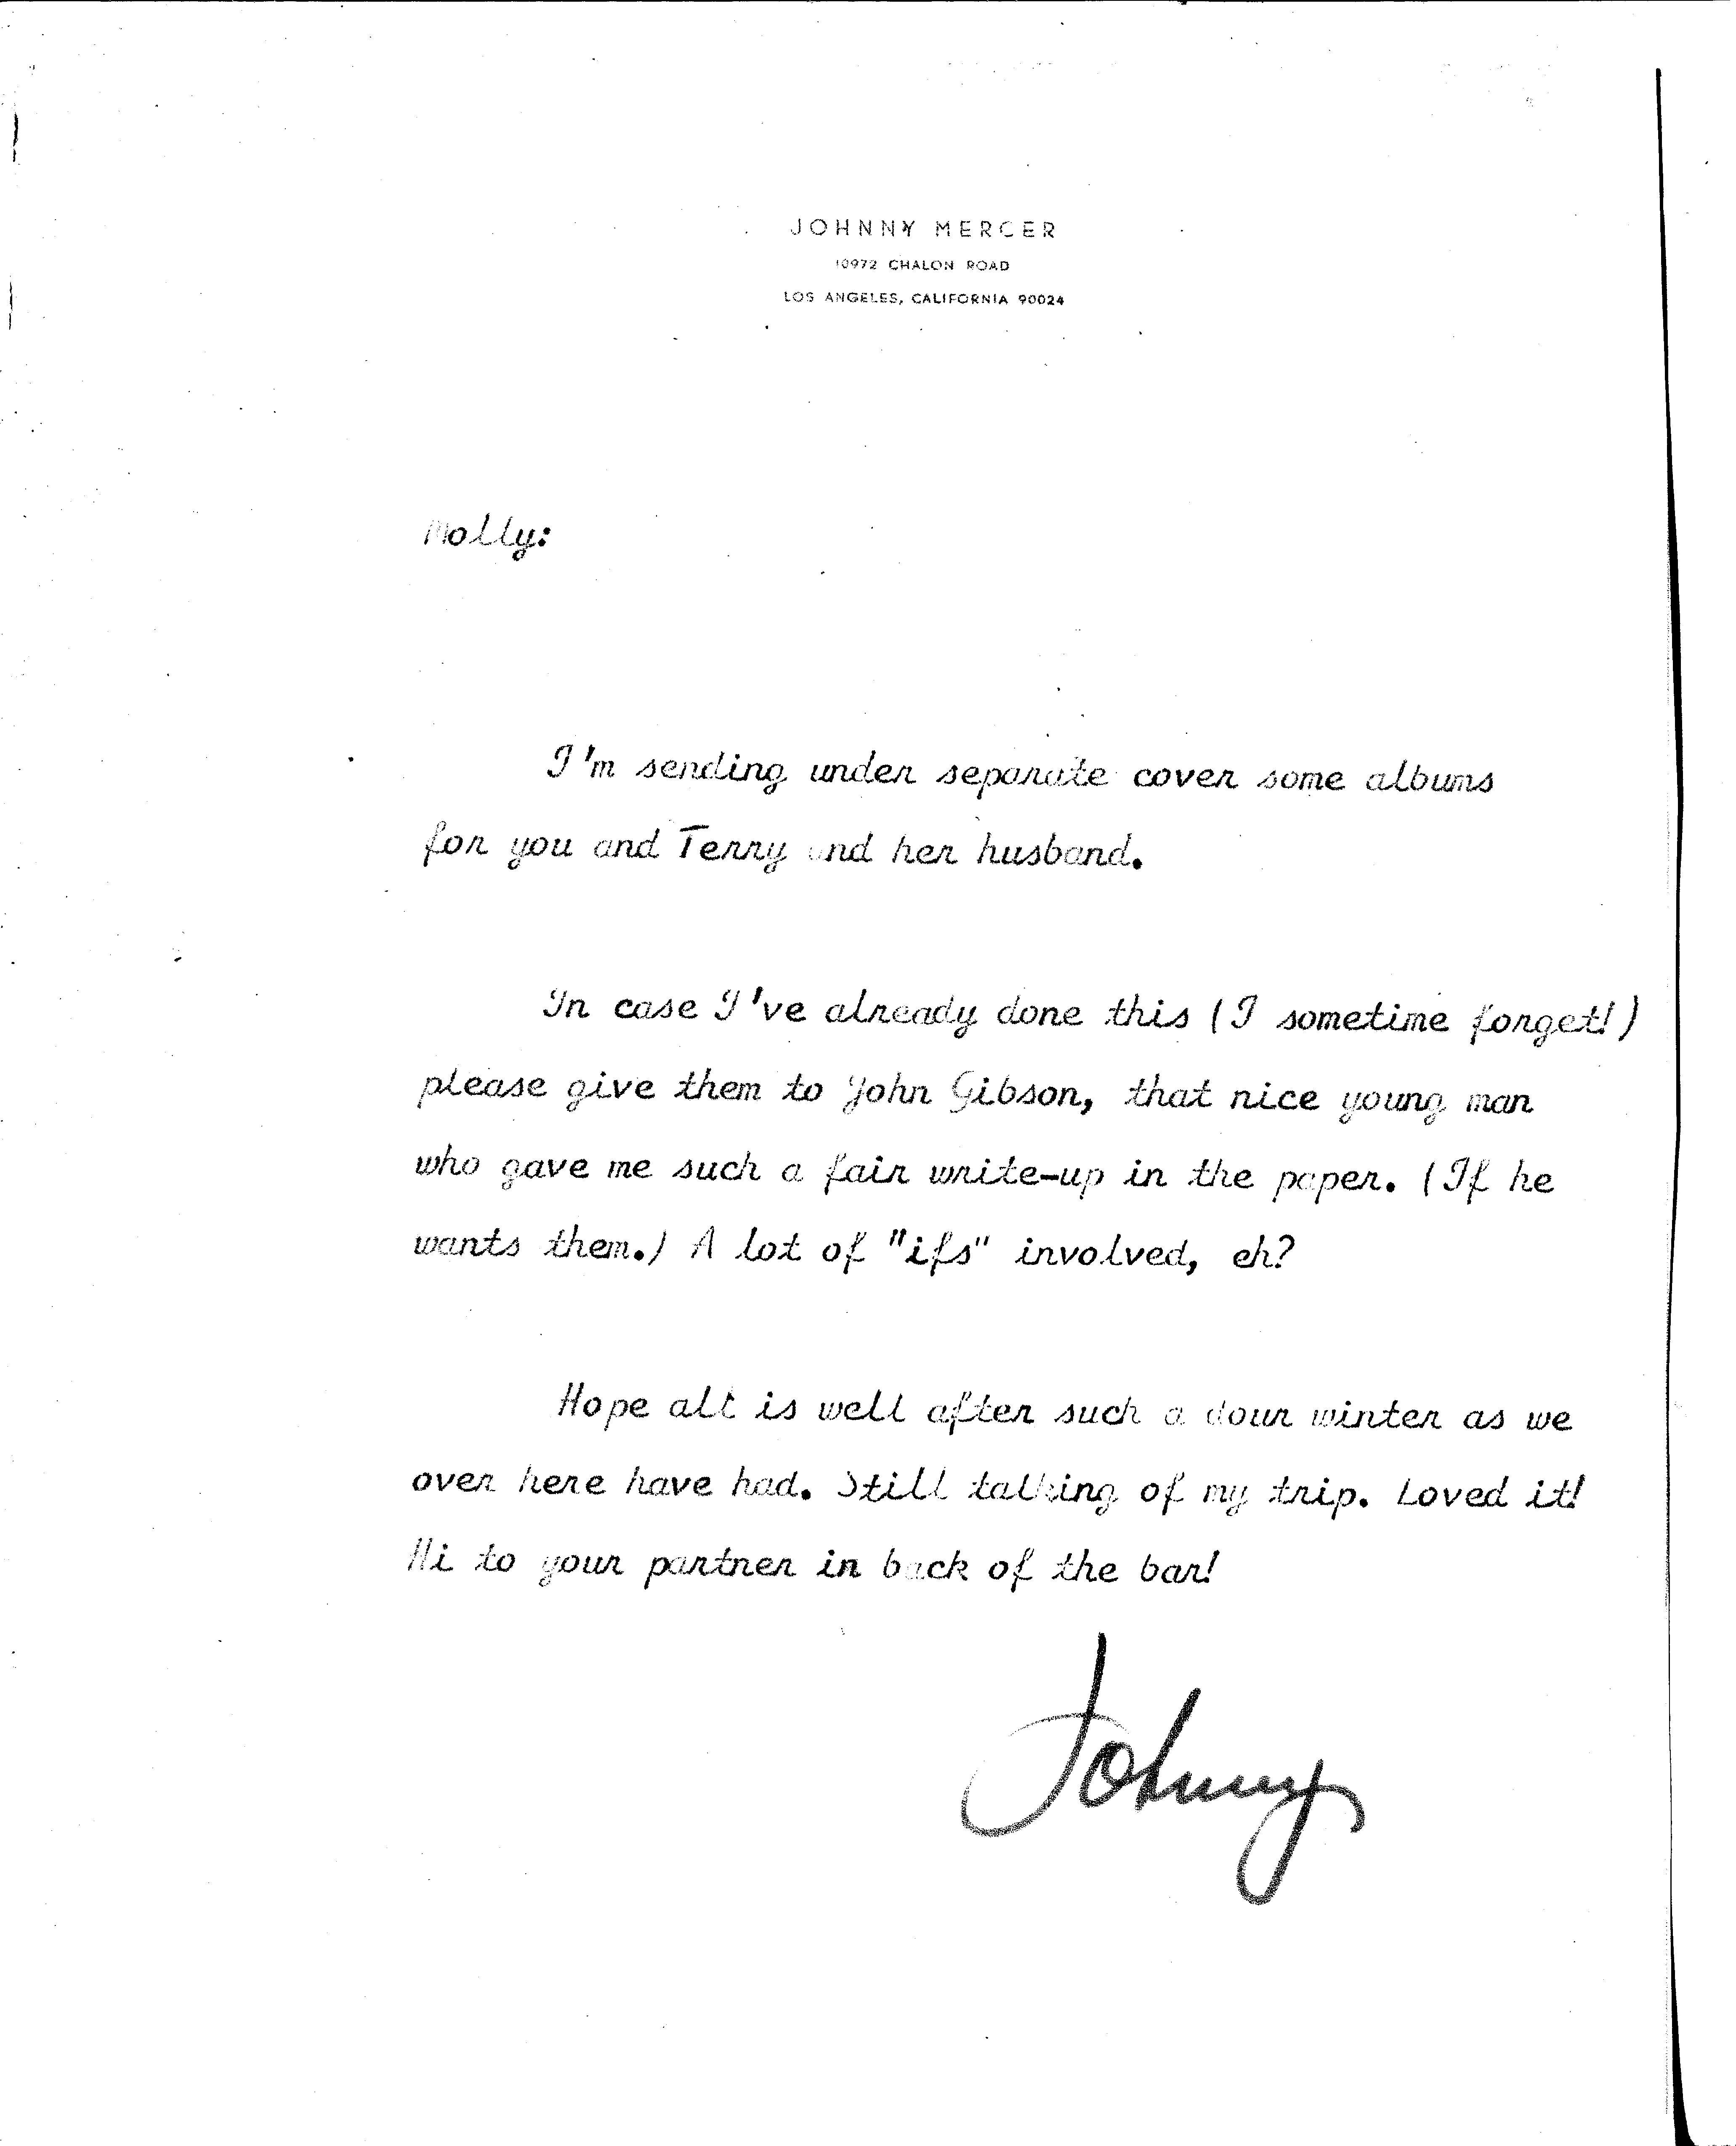 JOHNNY MERCER
10972 CHALON ROAD
LOS ANGELES, CALIFORNIA 90024
Molly:
I'm sending under separate cover some albums
for you and Terry and her husband.
In case I've already done this (I sometime forget!)
please give them to John Gibson, that nice young man
who gave me such a fair write-up in the paper. (If he
wants them.) A lot of "ifs" involved, eh?
Hope all is well after such a dour winter as we
over here have had. Still talking of my trip. Loved it!
Hi to your partner in back of the bar!
Johnny